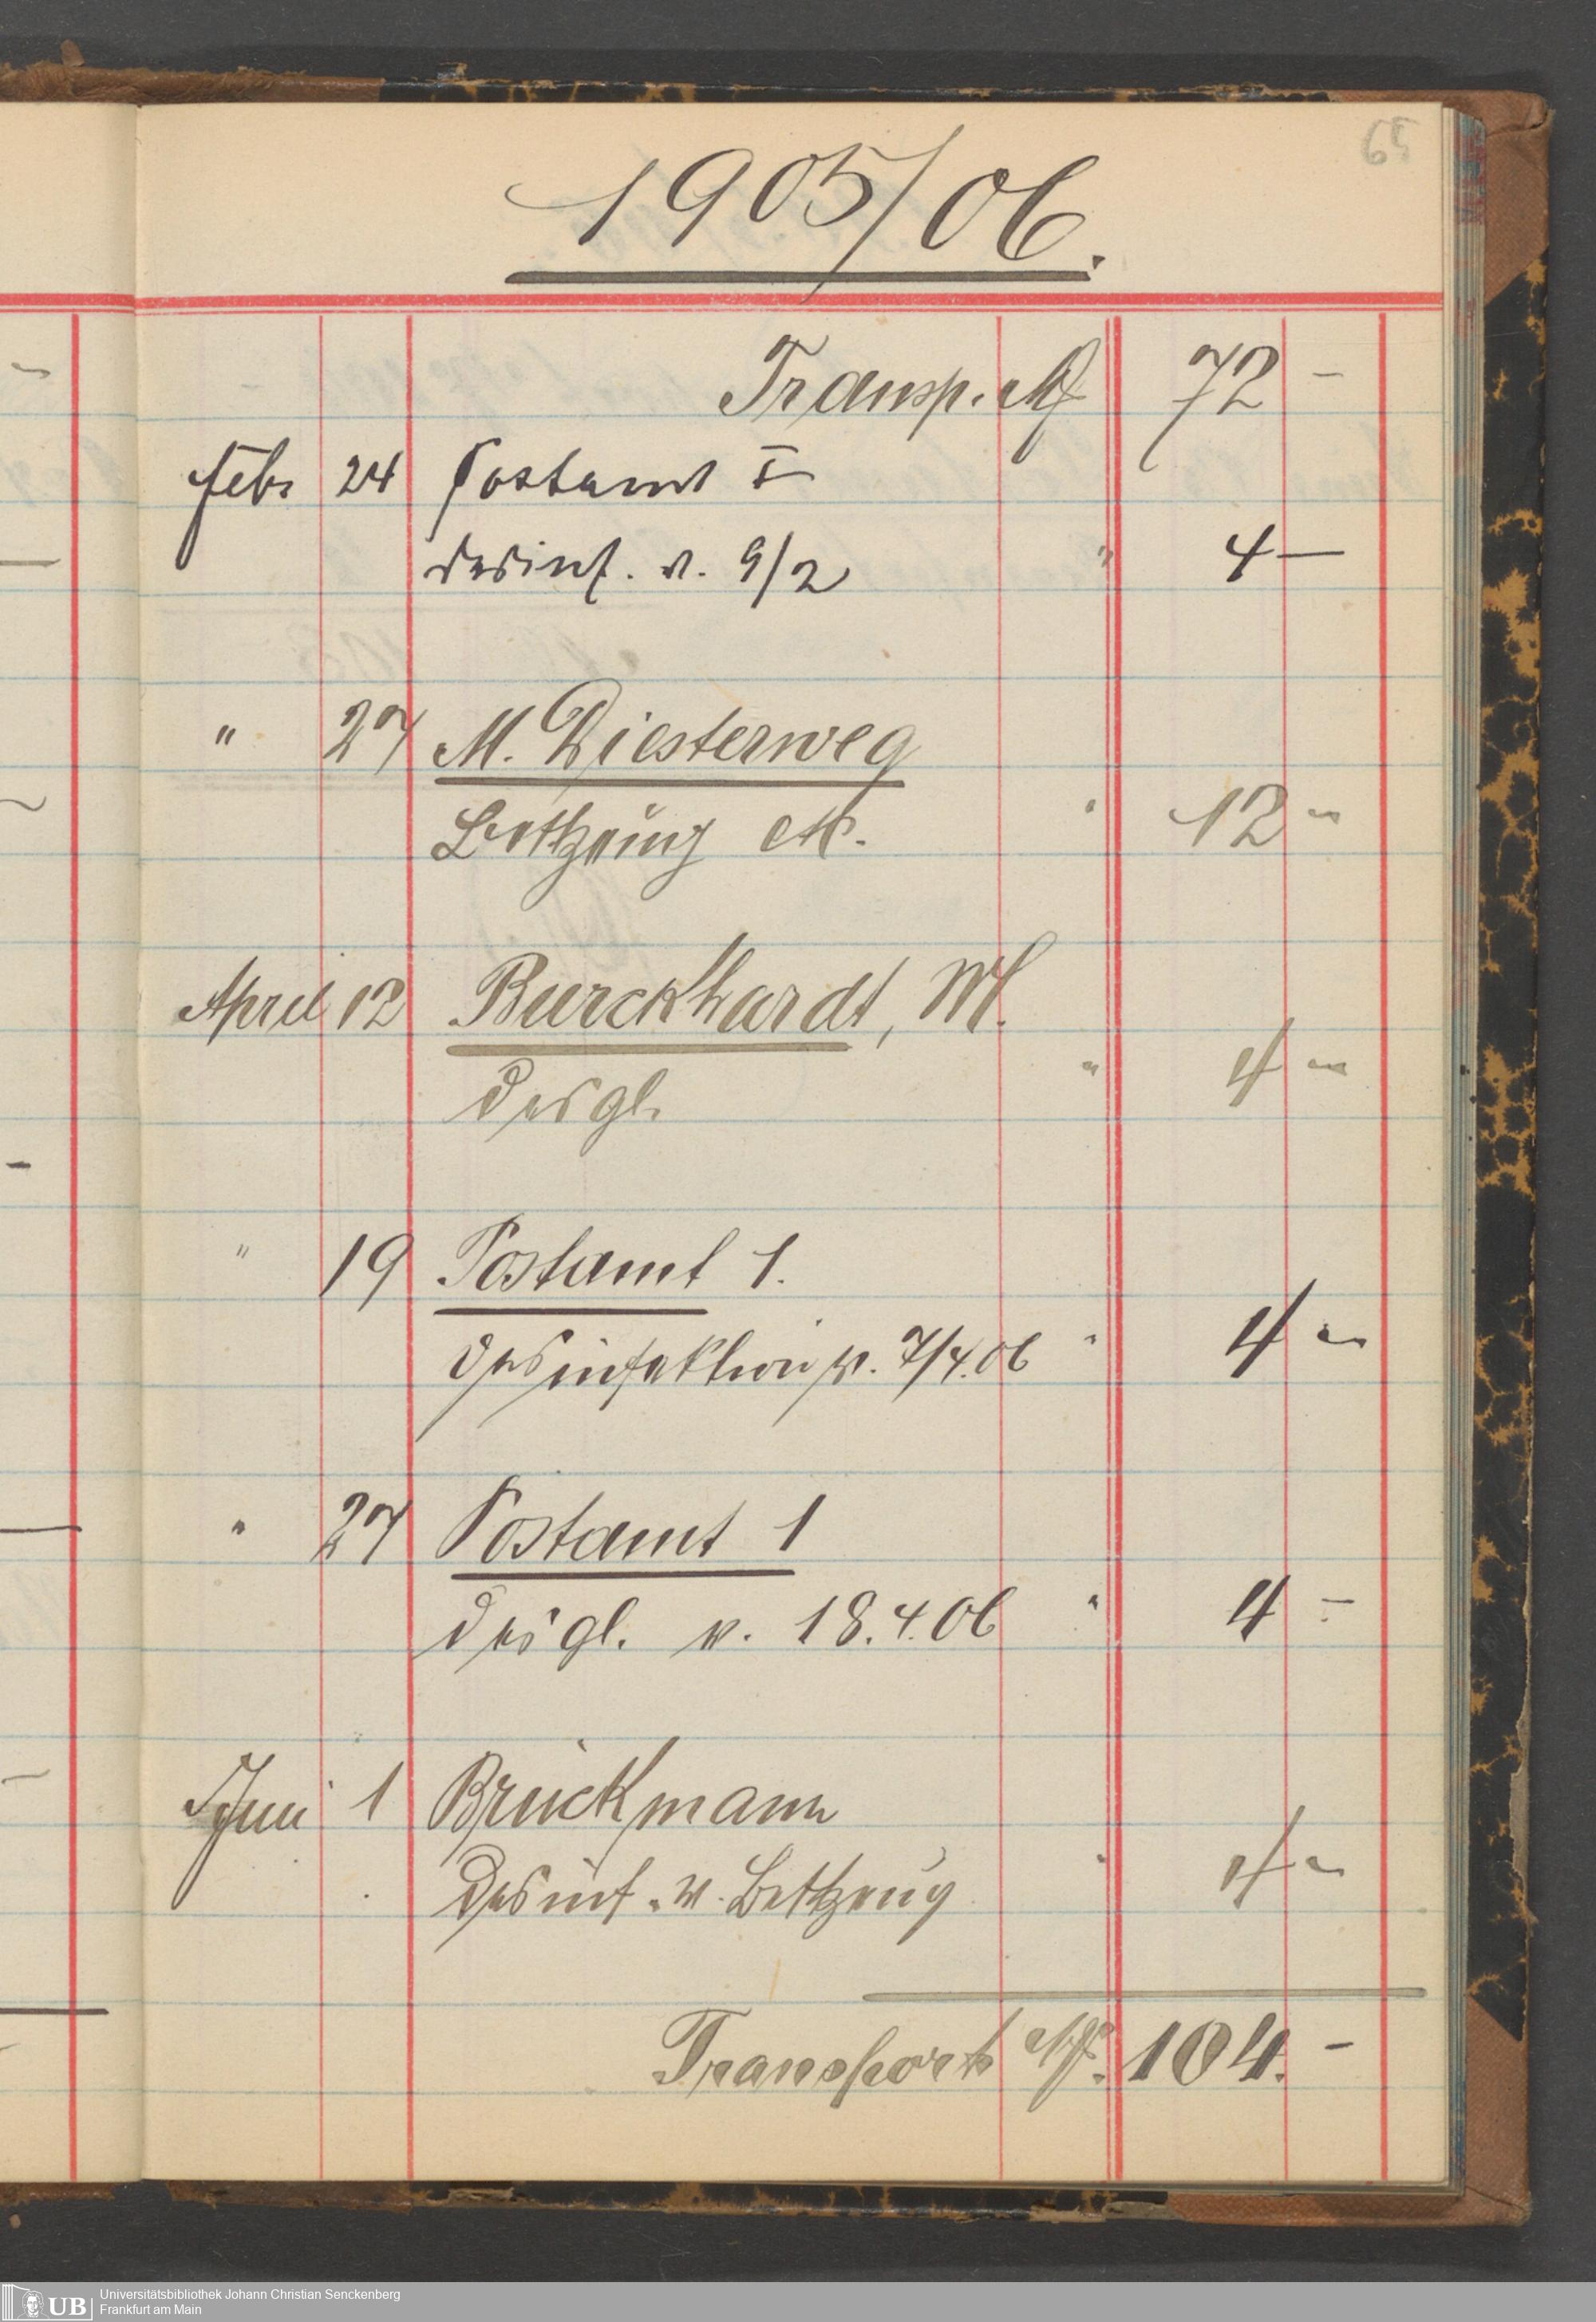 65
1905/06.
Transp. M 72 -
Febr 24 Postamt I
Desinf. v. 9/2 " 4 —
" 27 M. Diesterweg
Bettzeug etc. " 12 -
April 12 Burckhardt, W.
desgl. " 4 -
" 19 Postamt 1.
Desinfektion v. 7/4.06 " 4 -
" 27 Postamt 1
desgl. v. 18.4.06 " 4 -
Juni 1 Bruckmann
Desinf. v. Bettzeug " 4 -
Transport M. 104. -
UB Universitätsbibliothek Johann Christian Senckenberg
Frankfurt am Main